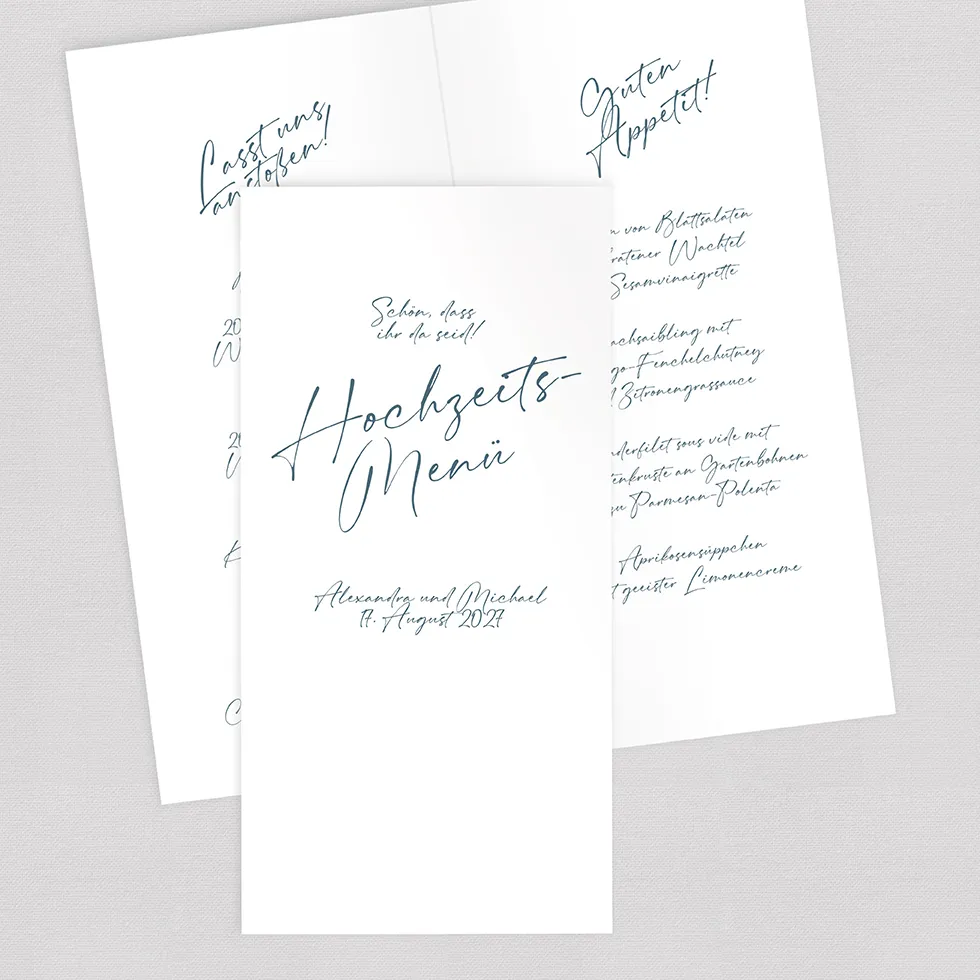 Lasst uns
anstoßen!
20
W
20
Guten
Appetit!
von Blattsalaten
Wachtel
Sesamvinaigrette
mit
go-Fenchelchutney
Zitronengrassauce
nderfilet sous vide mit
enkruste an Gartenbohnen
Parmesan-Polenta
Aprikosensüppchen
t geeister Limonencreme
Schön, dass
ihr da seid!
Hochzeits-
Menü
Alexandra und Michael
17. August 2027